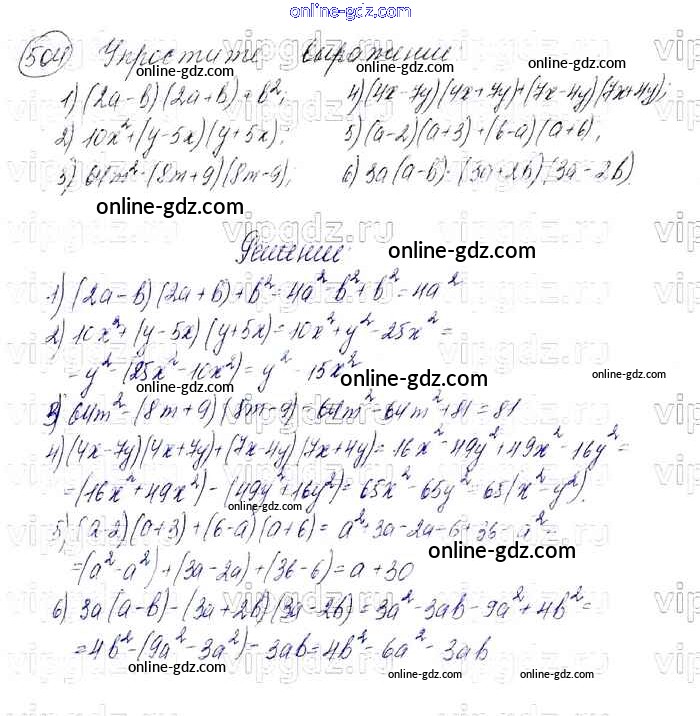 online-gdz.com
504 Упростите выражения
1) (2a-b)(2a+b)+b²; 4) (4x-7y)(4x+7y)+(7x-4y)(7x+4y);
2) 10x²+(y-5x)(y+5x); 5) (a-2)(a+3)+(6-a)(a+6);
3) 64m²-(8m+9)(8m-9); 6) 3a(a-b)-(3a+2b)(3a-2b).
online-gdz.com
Решение: online-gdz.com
1) (2a-b)(2a+b)+b²=4a²-b²+b²=4a²
2) 10x²+(y-5x)(y+5x)=10x²+y²-25x²=
=y²-(25x²-10x²)=y²-15x²
online-gdz.com
3) 64m²-(8m+9)(8m-9)=64m²-64m²+81=81
4) (4x-7y)(4x+7y)+(7x-4y)(7x+4y)=16x²-49y²+49x²-16y²=
=(16x²+49x²)-(49y²+16y²)=65x²-65y²=65(x²-y²).
5) (a-2)(a+3)+(6-a)(a+6)=a²+3a-2a-6+36-a²=
=(a²-a²)+(3a-2a)+(36-6)=a+30
online-gdz.com
6) 3a(a-b)-(3a+2b)(3a-2b)=3a²-3ab-9a²+4b²=
=4b²-(9a²-3a²)-3ab=4b²-6a²-3ab
online-gdz.com